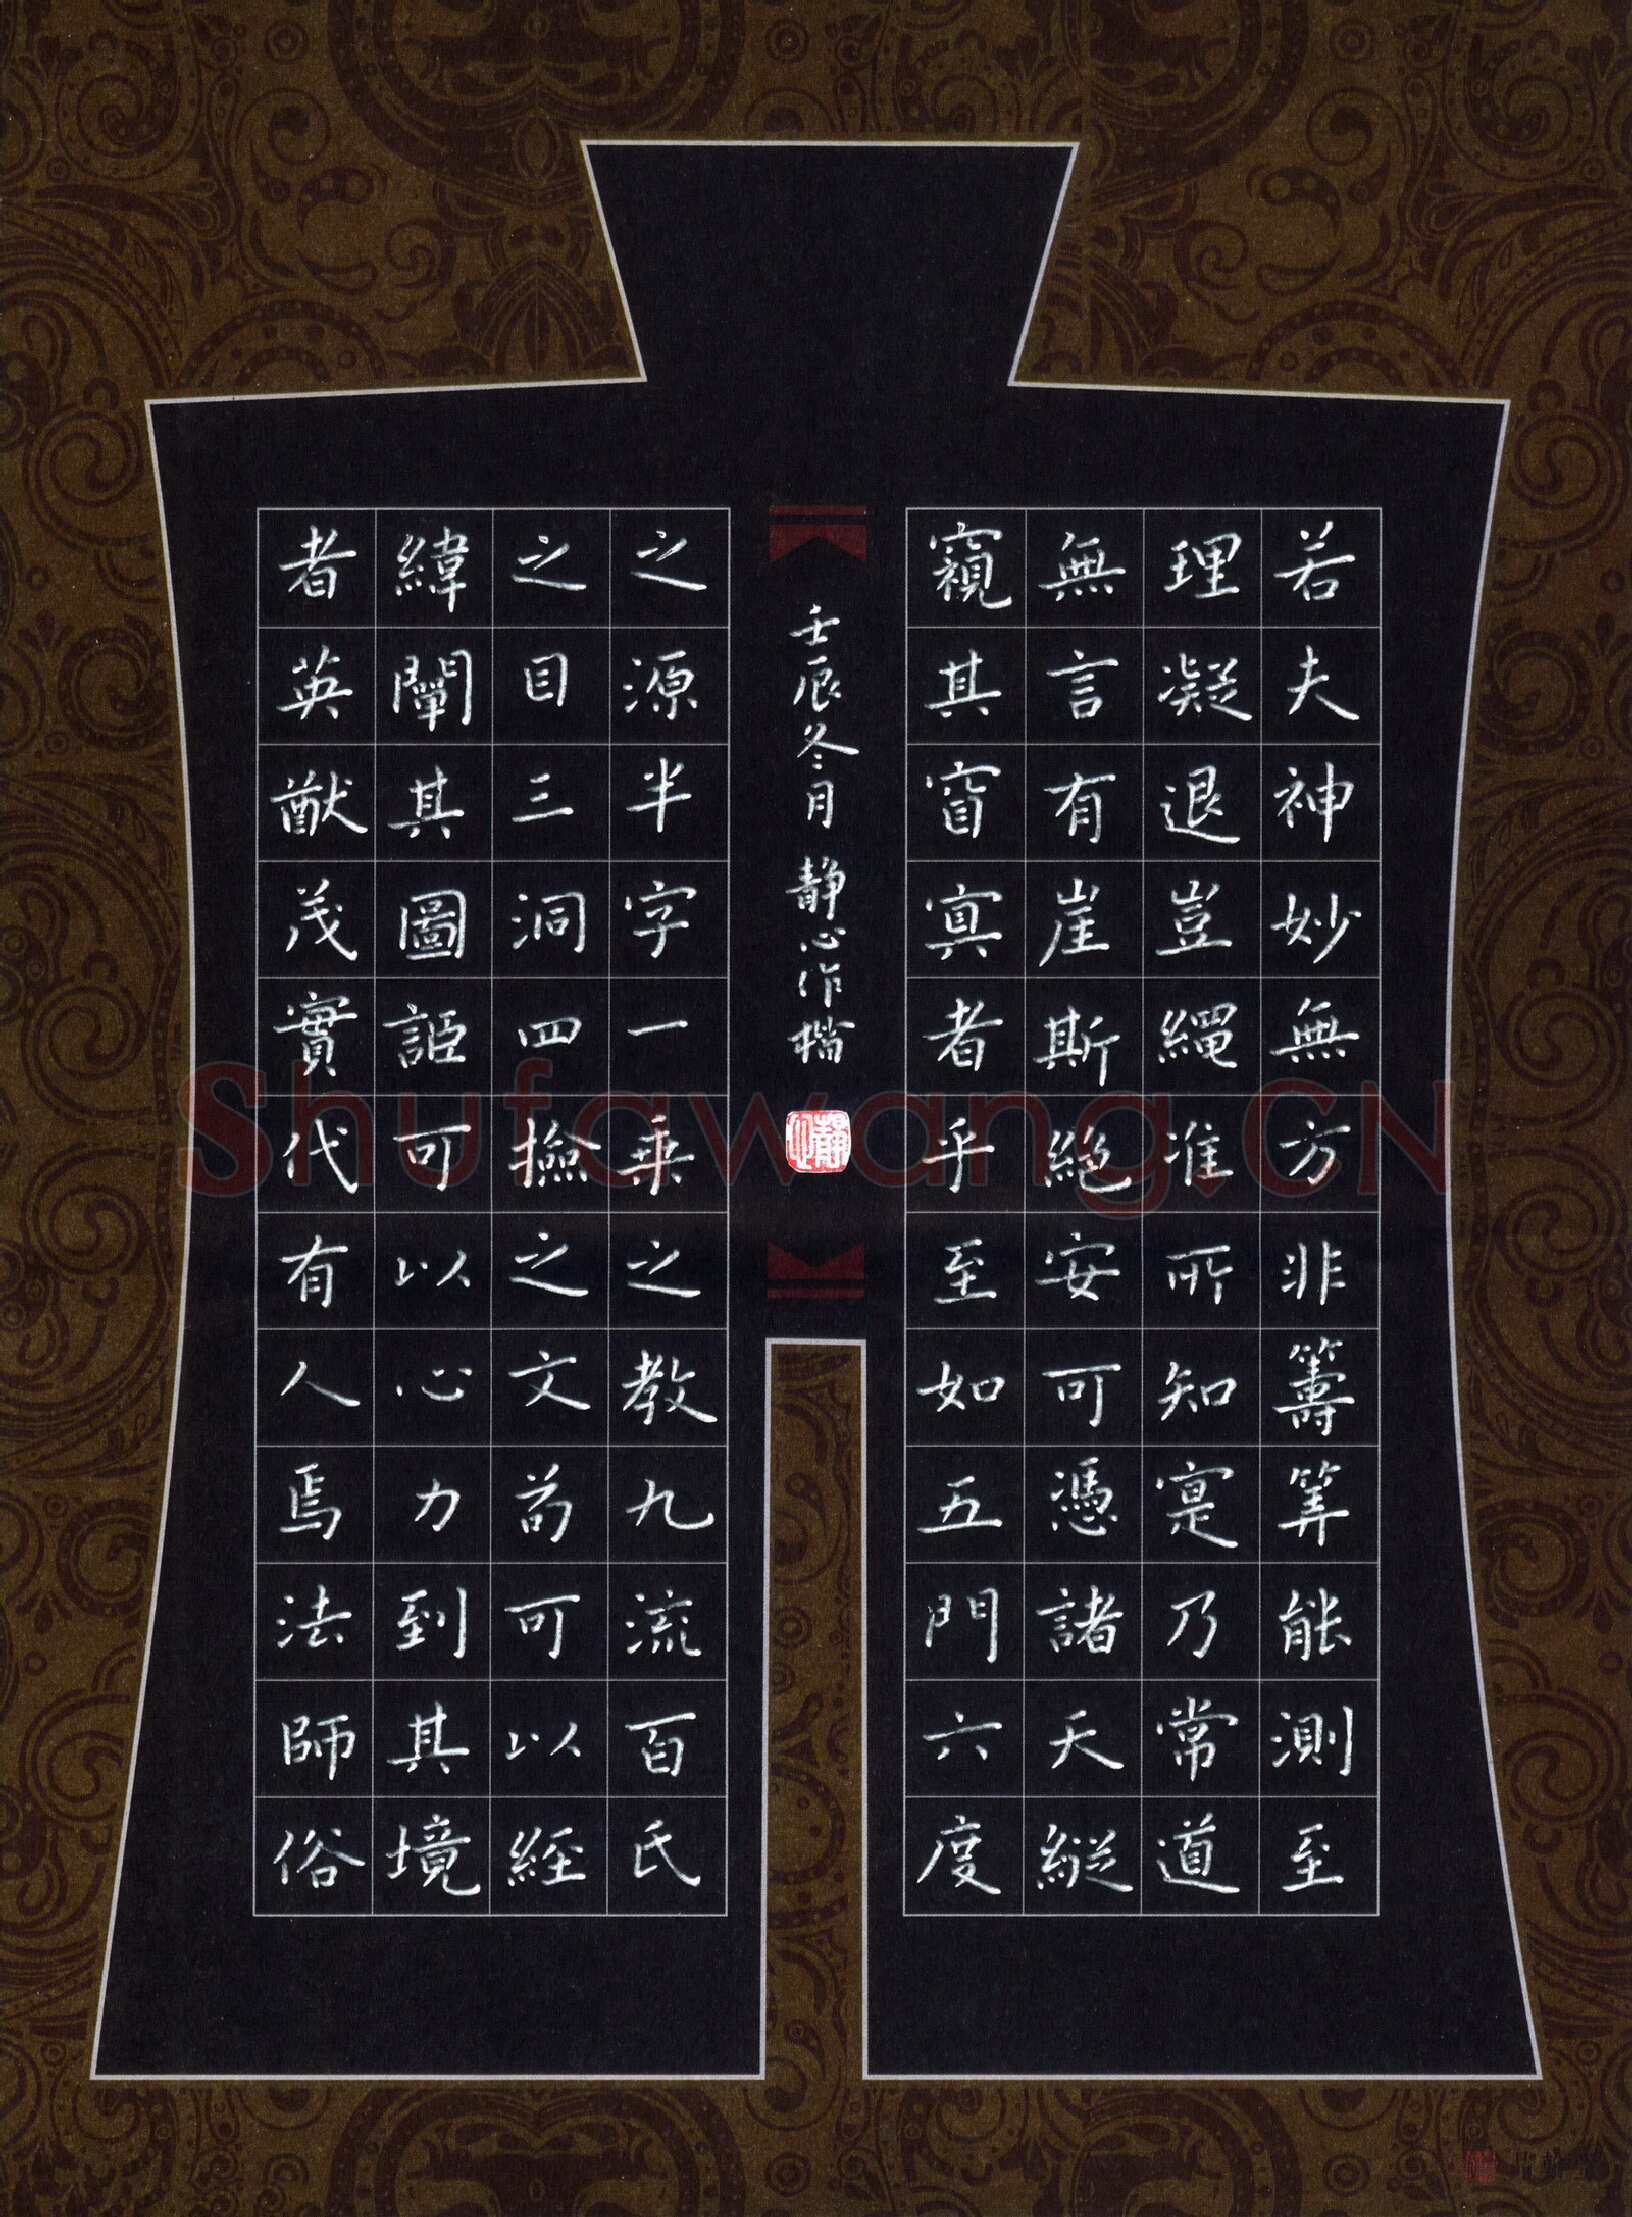 若夫神妙無方非籌筭能測至
理凝退豈繩准所知寔乃常道
無言有崖斯絕安可憑諸天縱
窺其窅寘者乎至如五門六度
之源半字一乗之教九流百氏
之目三洞四撿之文苟可以經
緯闡其圖詎可以心力到其境
者英猷茂實代有人焉法師俗
壬辰冬月 静心作楷
靜心
Shufawang.CN